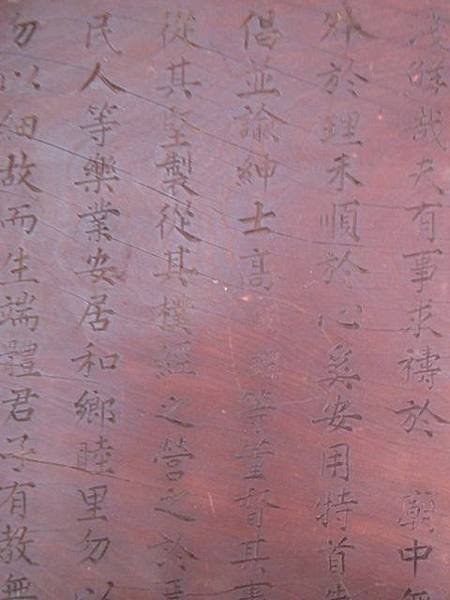 淺鮮哉夫有事求禱於 廟中無
外於理未順於心奚安用特首
倡並諭紳士高 等董督其事
從其堅製從其樸經之營之於
民人等樂業安居和鄉睦里勿以
勿以細故而生端體君子有教無